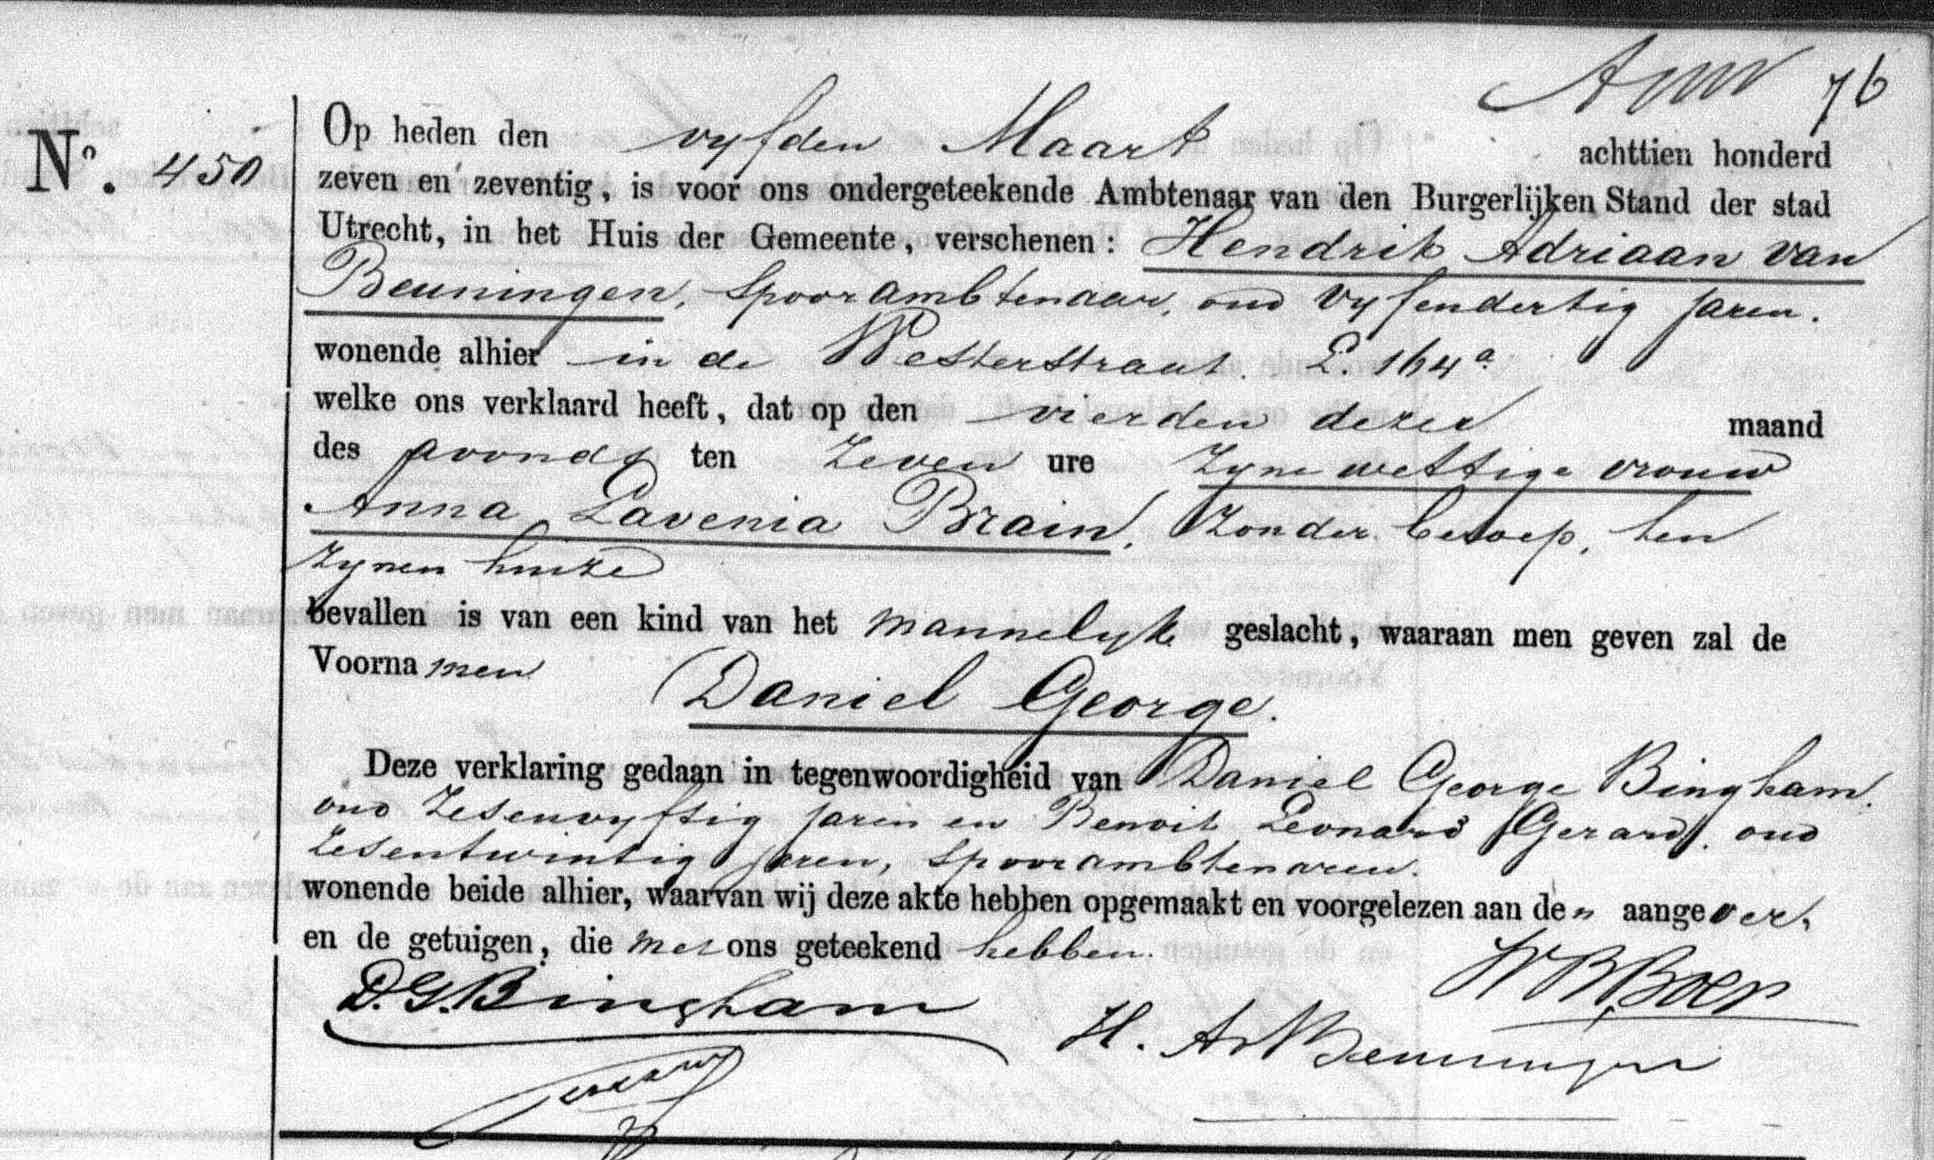 76
Nº. 450
Op heden den vyfden Maart achttien honderd
zeven en zeventig, is voor ons ondergeteekende Ambtenaar van den Burgerlijken Stand der stad
Utrecht, in het Huis der Gemeente, verschenen: Hendrik Adriaan van
Beuningen, Spoorambtenaar, oud vyfendertig jaren.
wonende alhier in de Westerstraat. L. 164a
welke ons verklaard heeft, dat op den vierden dezer maand
des avonds ten zeven ure zyne wettige vrouw
Anna Lavenia Brain, zonder beroep, ten
zynen huize
bevallen is van een kind van het mannelyk geslacht, waaraan men geven zal de
Voornamen
Daniel George.
Deze verklaring gedaan in tegenwoordigheid van Daniel George Bingham.
oud zesenvyftig jaren en Benoit Leonard Gerard, oud
zesentwintig jaren, spoorambtenaren.
wonende beide alhier, waarvan wij deze akte hebben opgemaakt en voorgelezen aan de „ aangever,
en de getuigen, die met ons geteekend hebben.
W B Boer
D. G. Bingham
H. A v Beuningen
Gerard